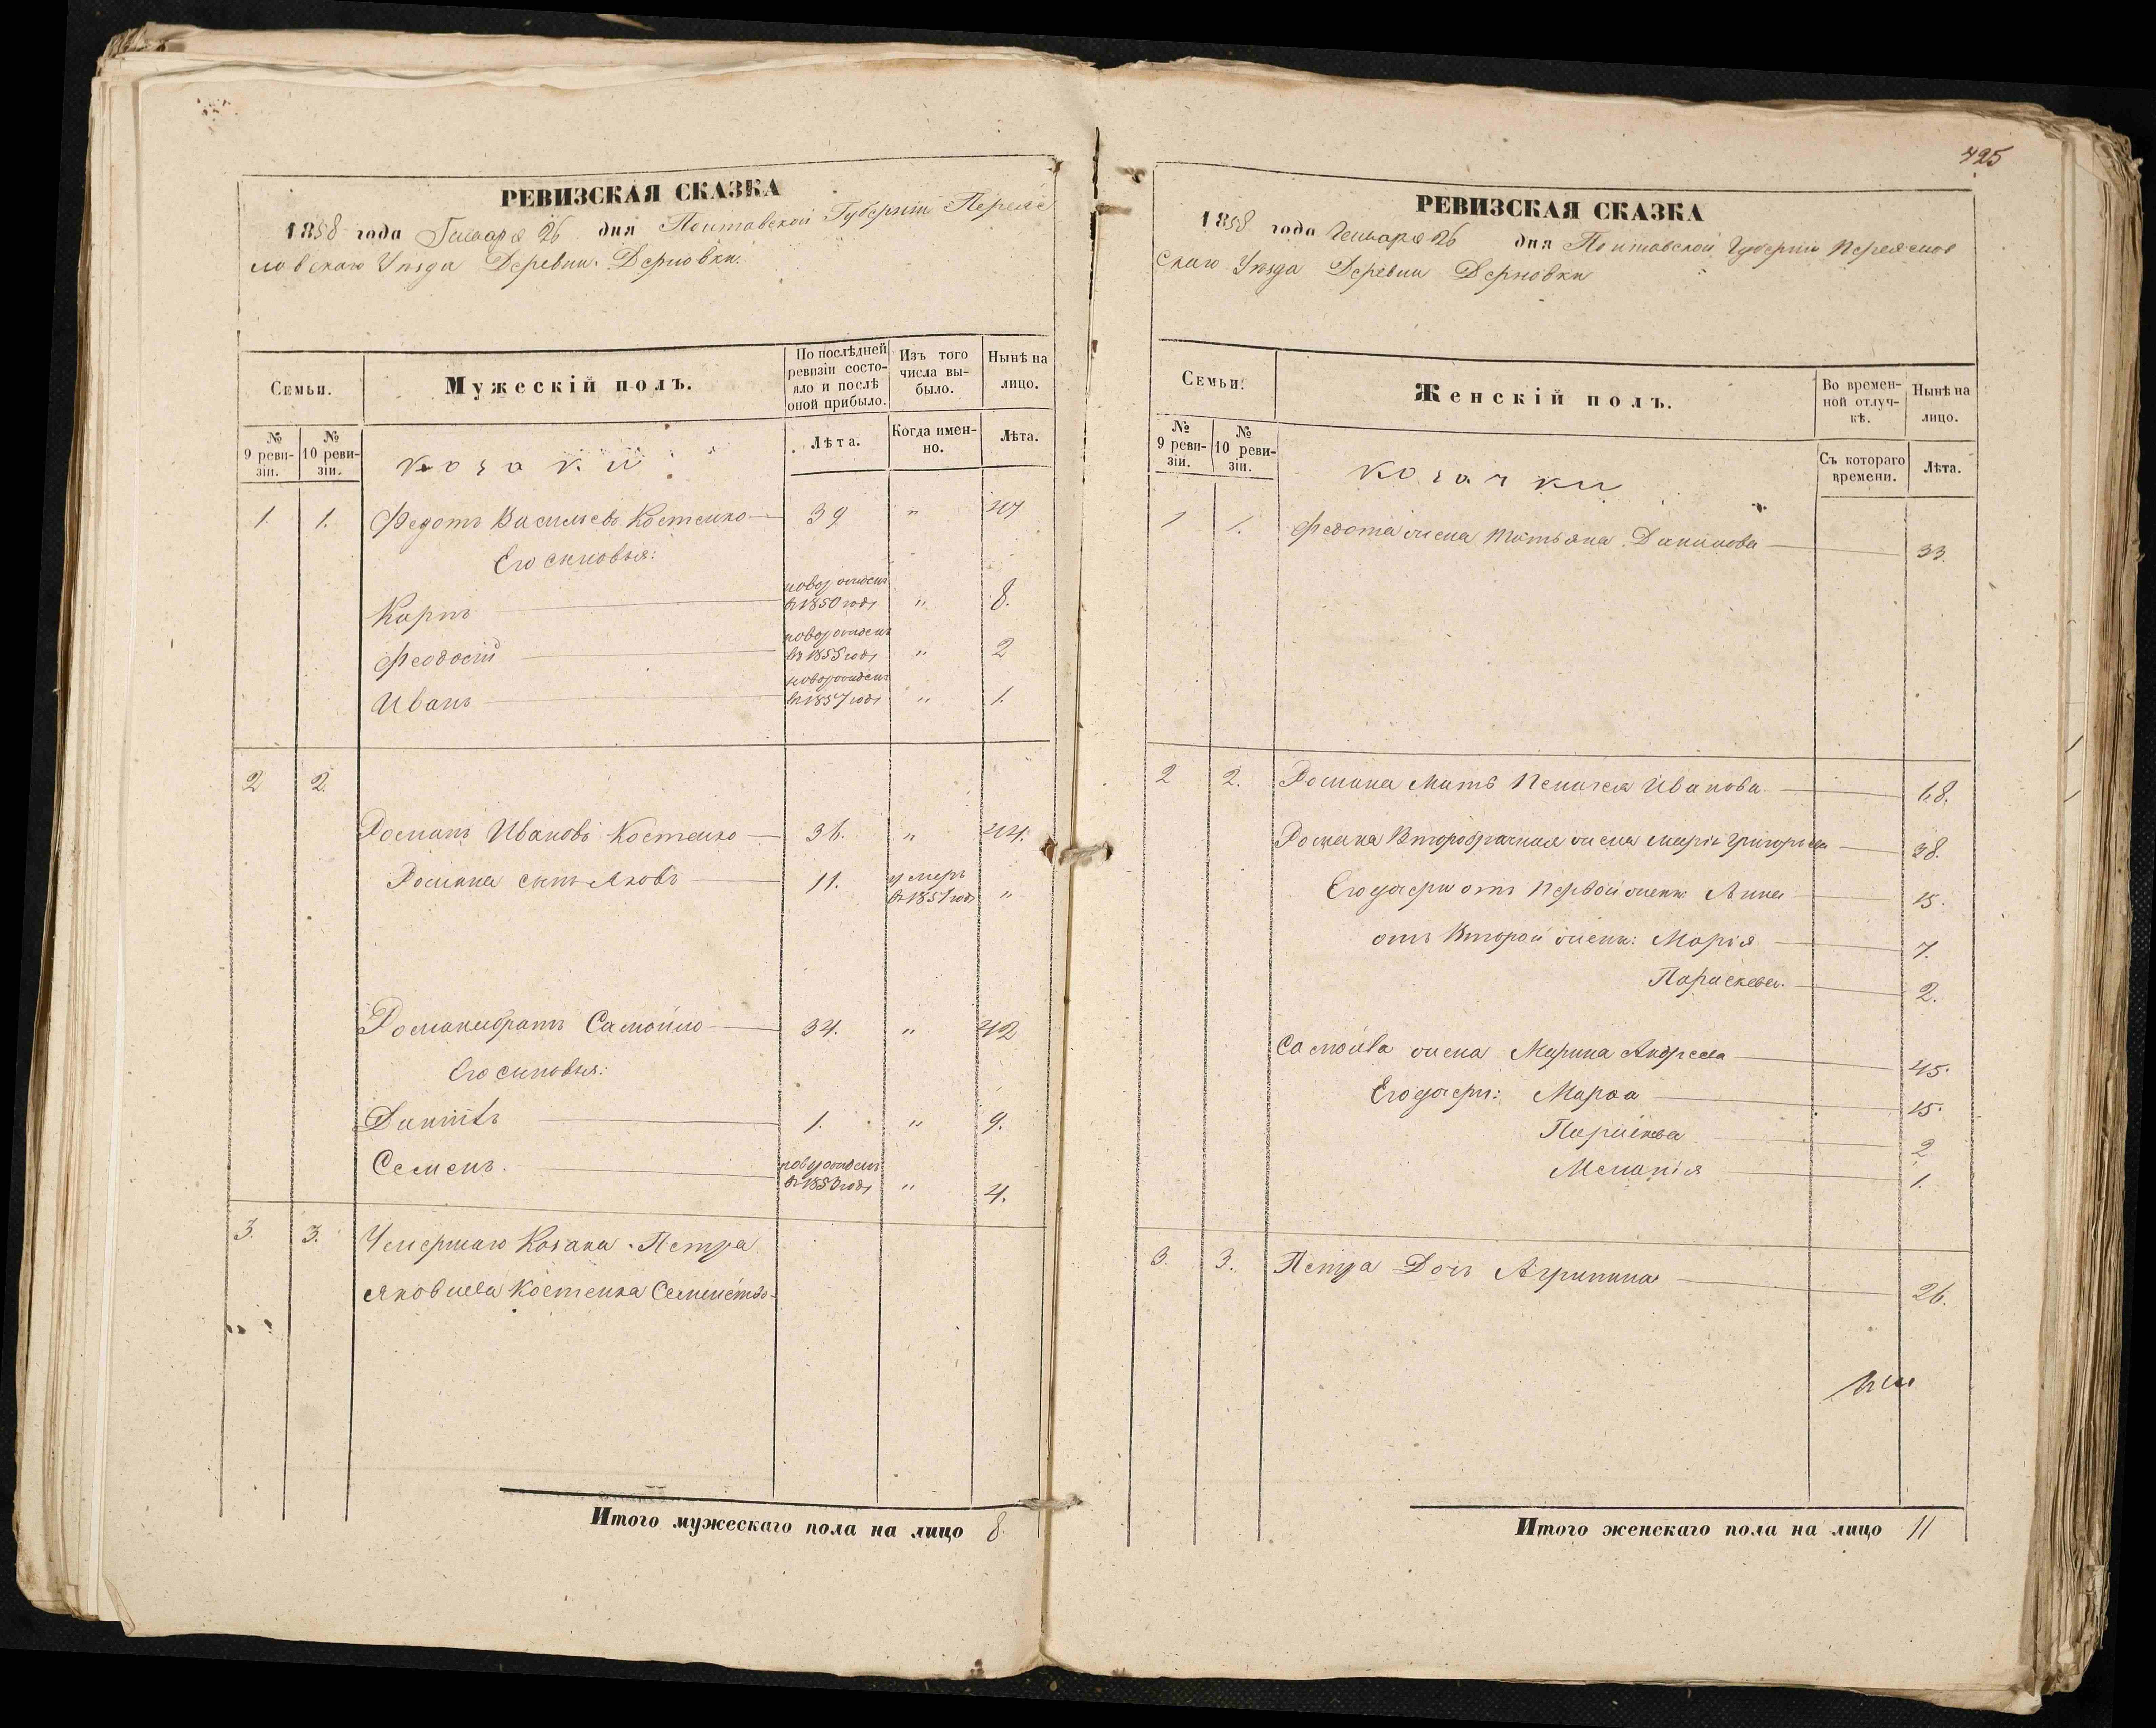 РЕВИЗСКАЯ СКАЗКА
1858 года Генваря 26 дня Полтавской Губерніи Переяс
ловскаго Уѣзда Деревни Дерновки.
Семьи.
Мужескій полъ.
По послѣдней ревизіи состояло и послѣ оной прибыло.
Изъ того числа выбыло.
Нынѣ на лицо.
№ 9 ревизіи.
№ 10 ревизіи.
козаки
Лѣта.
Когда именно.
Лѣта.
1. 1. Федотъ Васильевъ Костенко 39 " 47
Его сыновья:
Карпъ новорожденъ въ 1850 годѣ " 8.
Феодосій новорожденъ въ 1855 годѣ " 2
Иванъ новорожденъ въ 1857 годѣ " 1.
2 2.
Романъ Ивановъ Костенко 36. " 44.
Романа сынъ Яковъ 11. умеръ въ 1851 годѣ "
Романа братъ Самойло 34. " 42
Его сыновья:
Даніилъ 1. " 9.
Семенъ. новорожденъ въ 1853 годѣ " 4.
3. 3. Умершаго Козака Петра
Яковлева Костенка Семейство
Итого мужескаго пола на лицо 8
425
РЕВИЗСКАЯ СКАЗКА
1858 года Генваря 26 дня Полтавской Губерніи Переяслов
скаго Уѣзда Деревни Дерновки
Семьи.
Женскій полъ.
Во временной отлучкѣ.
Нынѣ на лицо.
№ 9 ревизіи.
№ 10 ревизіи.
козачки
Съ котораго времени.
Лѣта.
1 1. Федота жена Татьяна Данилова 33.
2 2. Романа мать Пелагея Иванова 68.
Романа Второбрачная жена Марія Григорьева 38.
Его дочери отъ Первой жены Анна 15.
отъ Второй жены: Марія 7.
Параскева. 2.
Самойла жена Марина Андреева 45.
Его дочери: Марѳа 15.
Параскева 2
Меланія 1.
3. 3. Петра Дочь Агрипина 26.
Итого женскаго пола на лицо 11